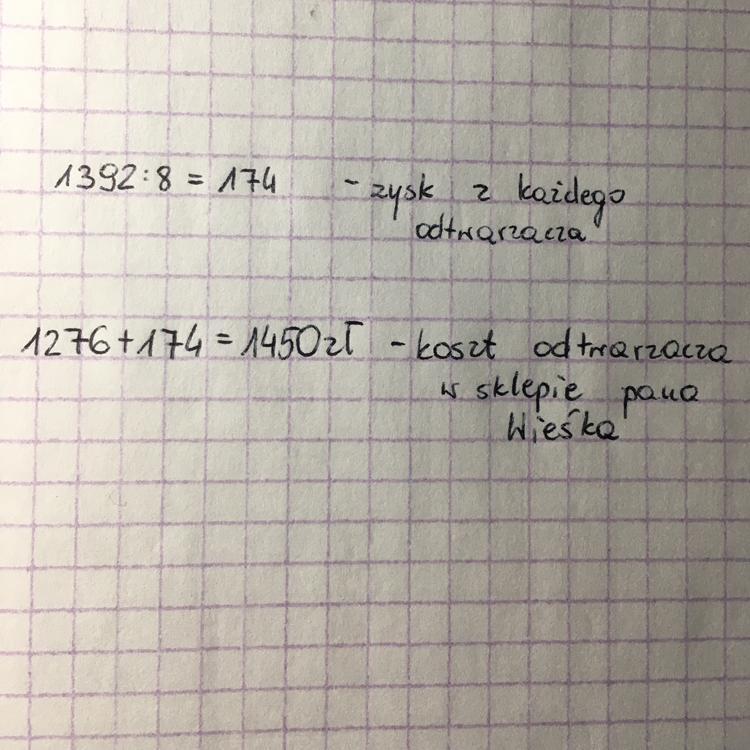 1392:8 = 174 - zysk z każdego
odtwarzacza
1276+174 = 1450zł - koszt odtwarzacza
w sklepie pana
Wieśka